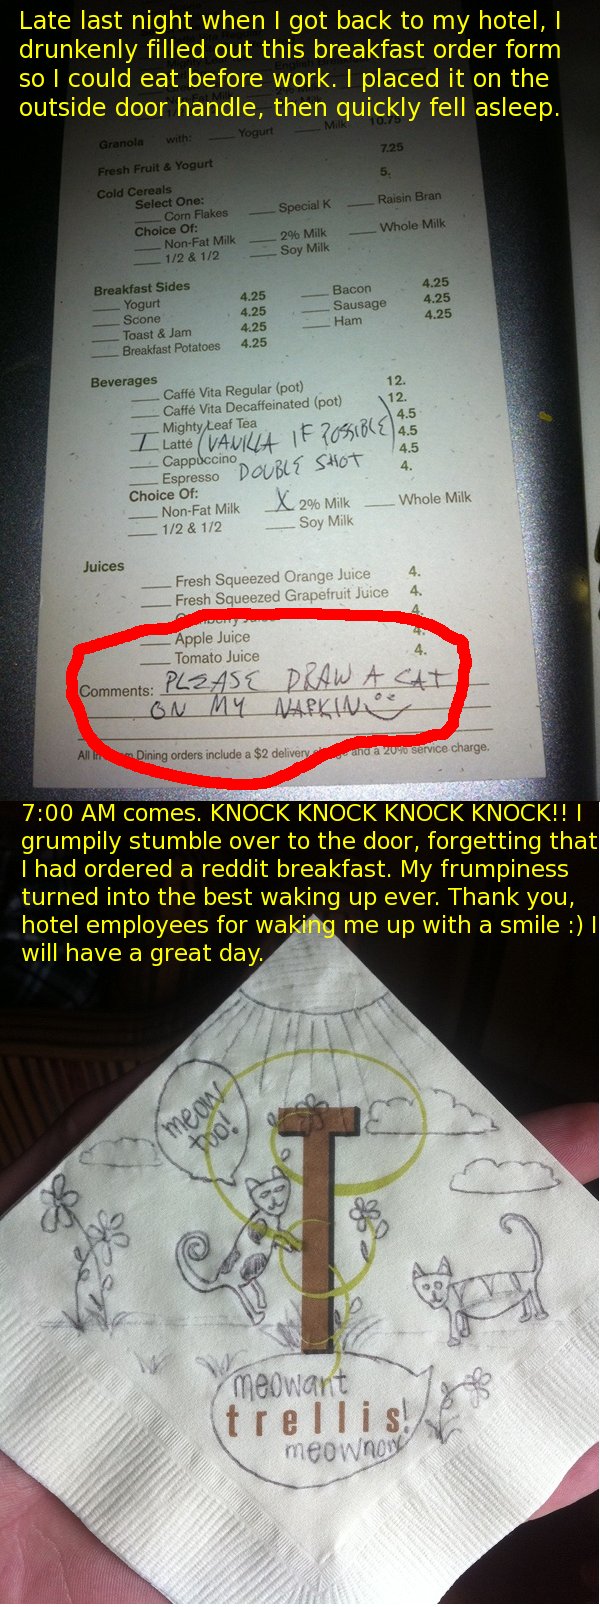 Late last night when I got back to my hotel, I
drunkenly filled out this breakfast order form
so I could eat before work. I placed it on the
outside door handle, then quickly fell asleep.
Granola with: ___ Yogurt ___ Milk 10.75
Fresh Fruit & Yogurt 7.25
Cold Cereals 5.
Select One:
___ Corn Flakes ___ Special K ___ Raisin Bran
Choice Of:
___ Non-Fat Milk ___ 2% Milk ___ Whole Milk
___ 1/2 & 1/2 ___ Soy Milk
Breakfast Sides
___ Yogurt 4.25 ___ Bacon 4.25
___ Scone 4.25 ___ Sausage 4.25
___ Toast & Jam 4.25 ___ Ham 4.25
___ Breakfast Potatoes 4.25
Beverages
___ Caffé Vita Regular (pot) 12.
___ Caffé Vita Decaffeinated (pot) 12.
___ Mighty Leaf Tea 4.5
1 Latté (VANILLA IF POSSIBLE) 4.5
___ Cappuccino 4.5
___ Espresso DOUBLE SHOT 4.
Choice Of:
___ Non-Fat Milk X 2% Milk ___ Whole Milk
___ 1/2 & 1/2 ___ Soy Milk
Juices
___ Fresh Squeezed Orange Juice 4.
___ Fresh Squeezed Grapefruit Juice 4.
Cranberry Juice 4.
___ Apple Juice 4.
___ Tomato Juice 4.
Comments: PLEASE DRAW A CAT
ON MY NAPKIN
Dining orders include a $2 delivery and a 20% service charge.
7:00 AM comes. KNOCK KNOCK KNOCK KNOCK!! I
grumpily stumble over to the door, forgetting that
I had ordered a reddit breakfast. My frumpiness
turned into the best waking up ever. Thank you,
hotel employees for waking me up with a smile :) I
will have a great day.
meow
too!
T
meowant
trellis!
meownow